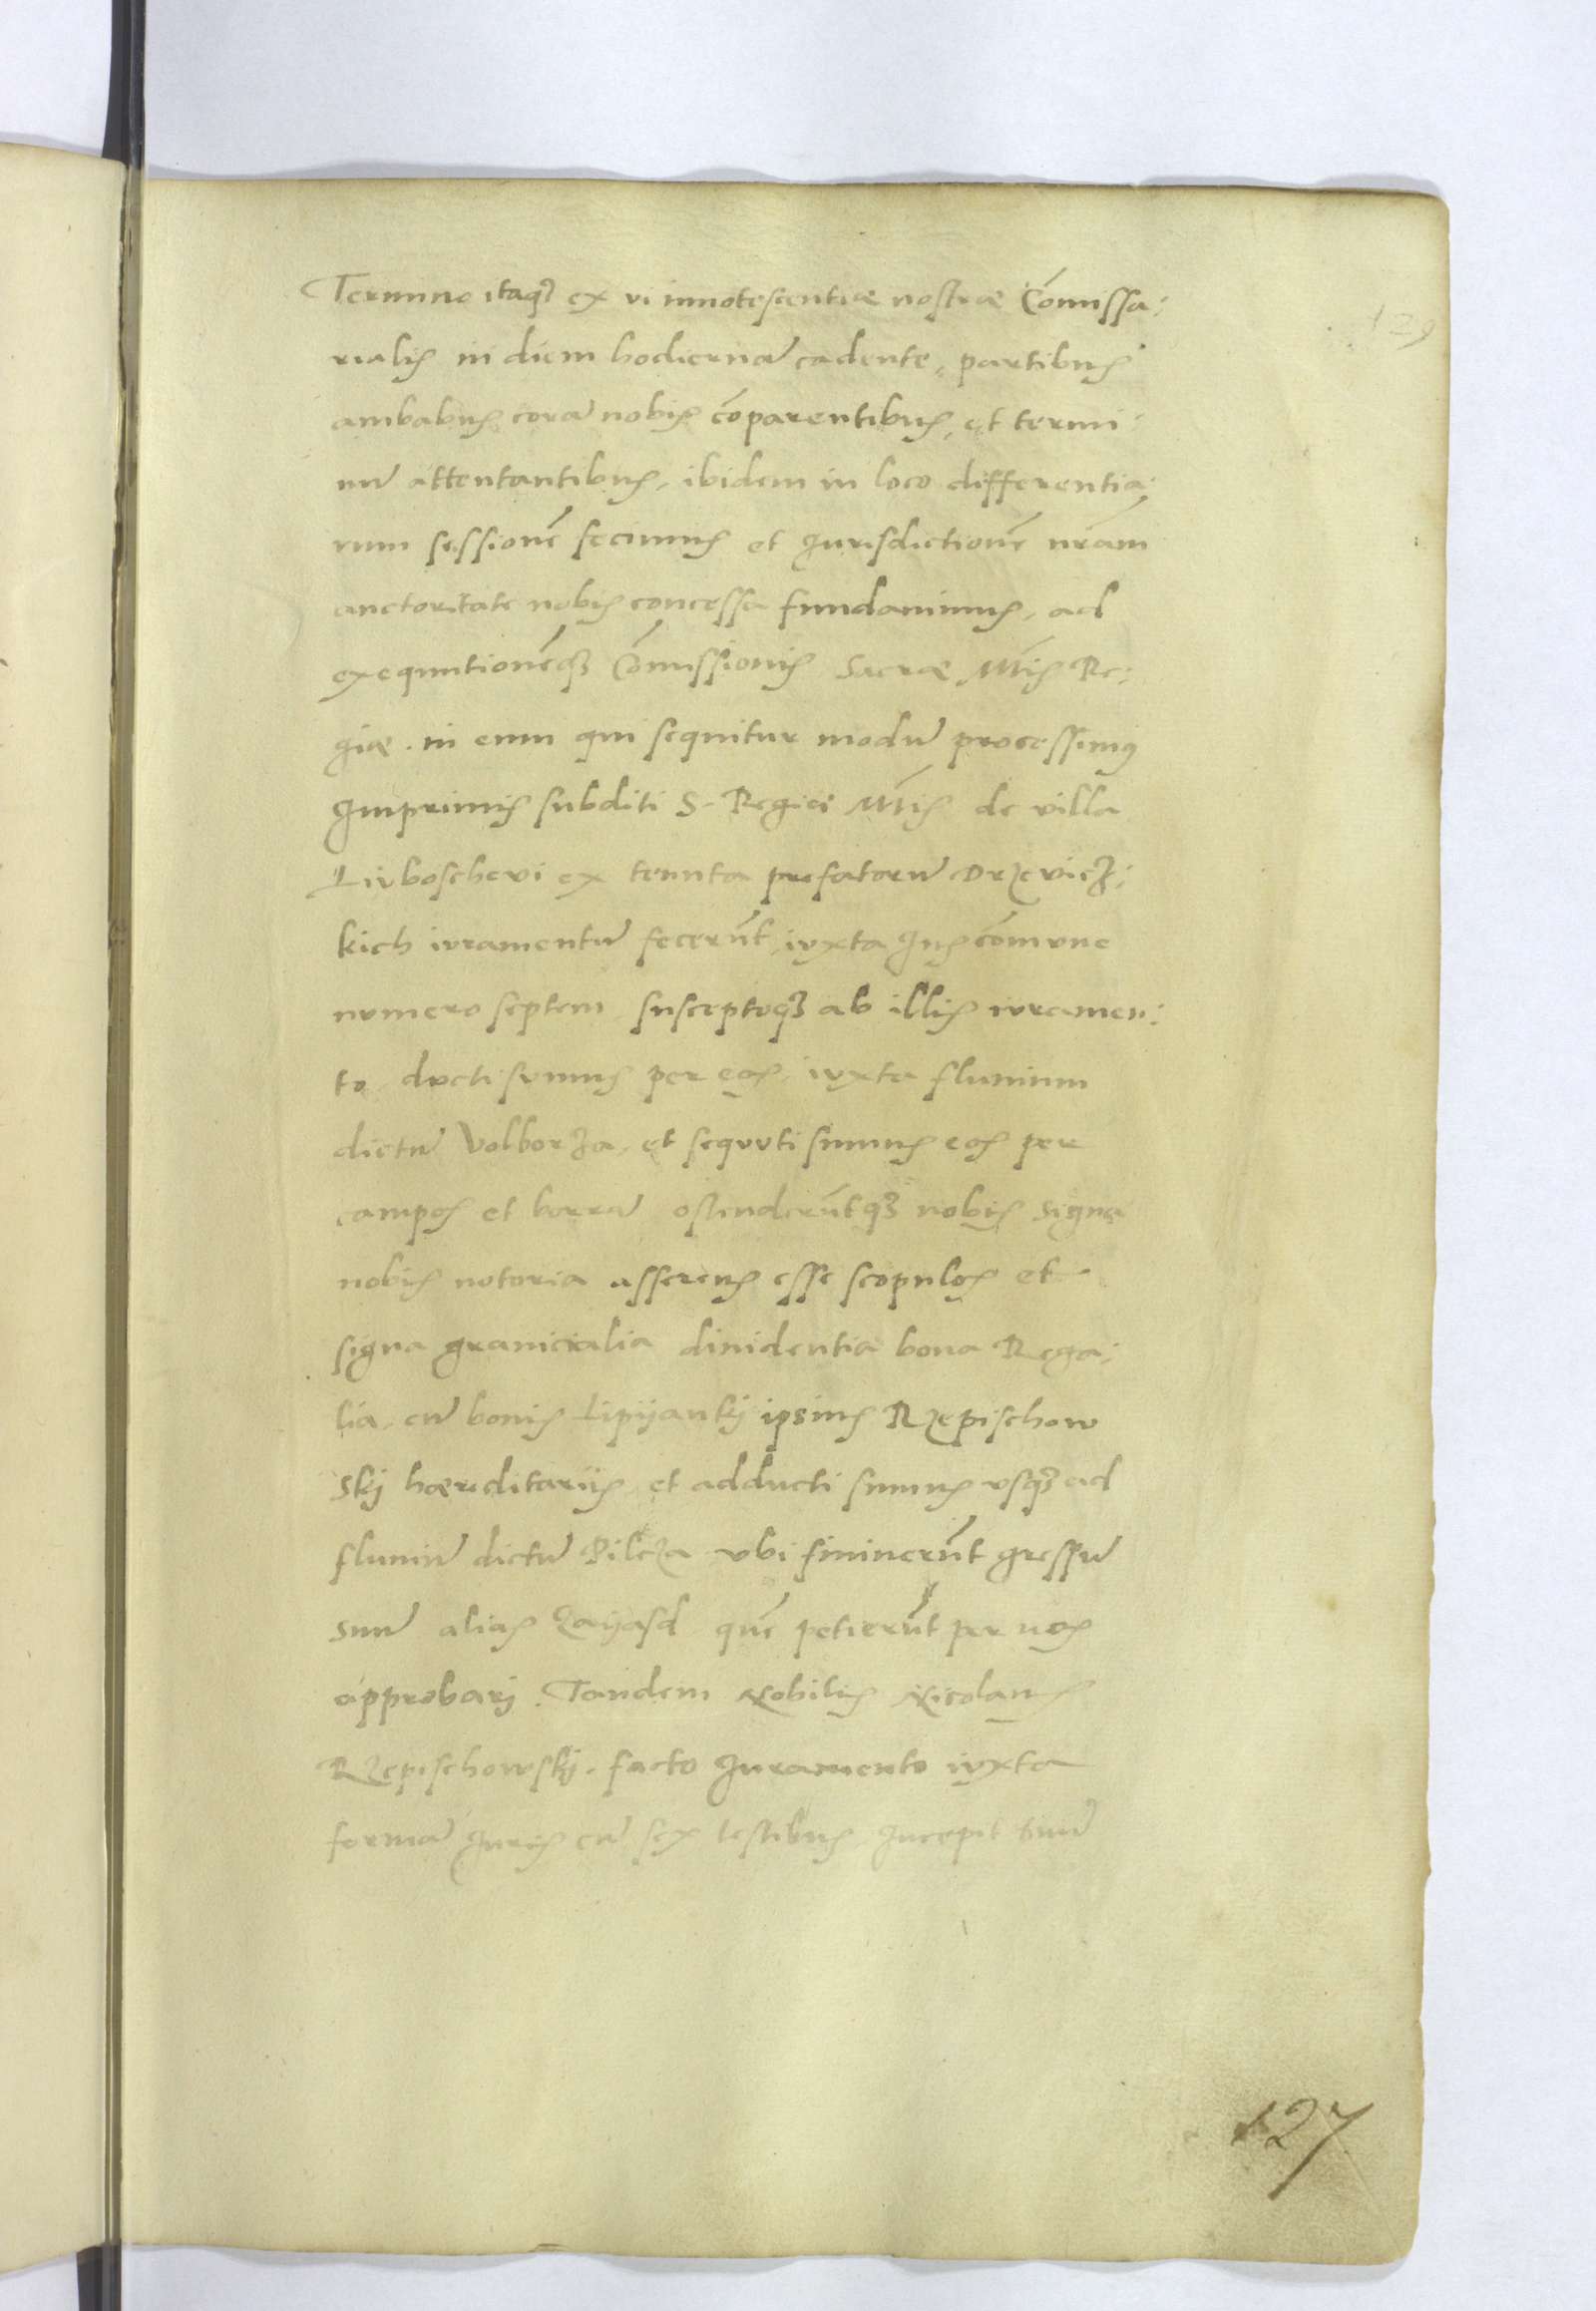 Termino itaq3 ex vi innotescentiæ nostræ Cōmissa:
rialis in diem hodiernā cadente, partibus
ambabus corā nobis cōparentibus, et termi
nū attentantibus, ibidem in loco differentia:
rum sessionē fecimus et Jurisdictionē nr̄am
auctoritate nobis concessa fundavimus, ad
exequutionēq3 Cōmissionis Sacræ Mtis Re:
giæ. in eum qui sequitur modū processimus
Jmprimis subditi S. Regiei Mtis de villa
Luboschevi ex tenuta prefatorū Drzevicz:
kich iuramentū fecerūt, iuxta Jus cōmune
numero septem, susceptoq3 ab illis iuramen:
to, ducti sumus per eos, iuxta fluuium
dictū Volborza, et sequuti sumus eos per
campos et borrā ostenderūtq3 nobis signa
nobis notoria asserens esse scopulos et
signa granicialia diuidentia bona Rega:
lia, cū bonis Lipijanskj ipsius Rzepischow
skj hæreditarijs, et adducti sumus usq3 ad
fluuiū dictū Pilcza ubi finiuerūt gressū
suū alias Zaijasd quē petierūt per nos
approbarj. Tandem Nobilis Nicolaus
Rzepischowskj. facto Juramento iuxta
formā Juris cū sex testibus Jncepit suū
129
127